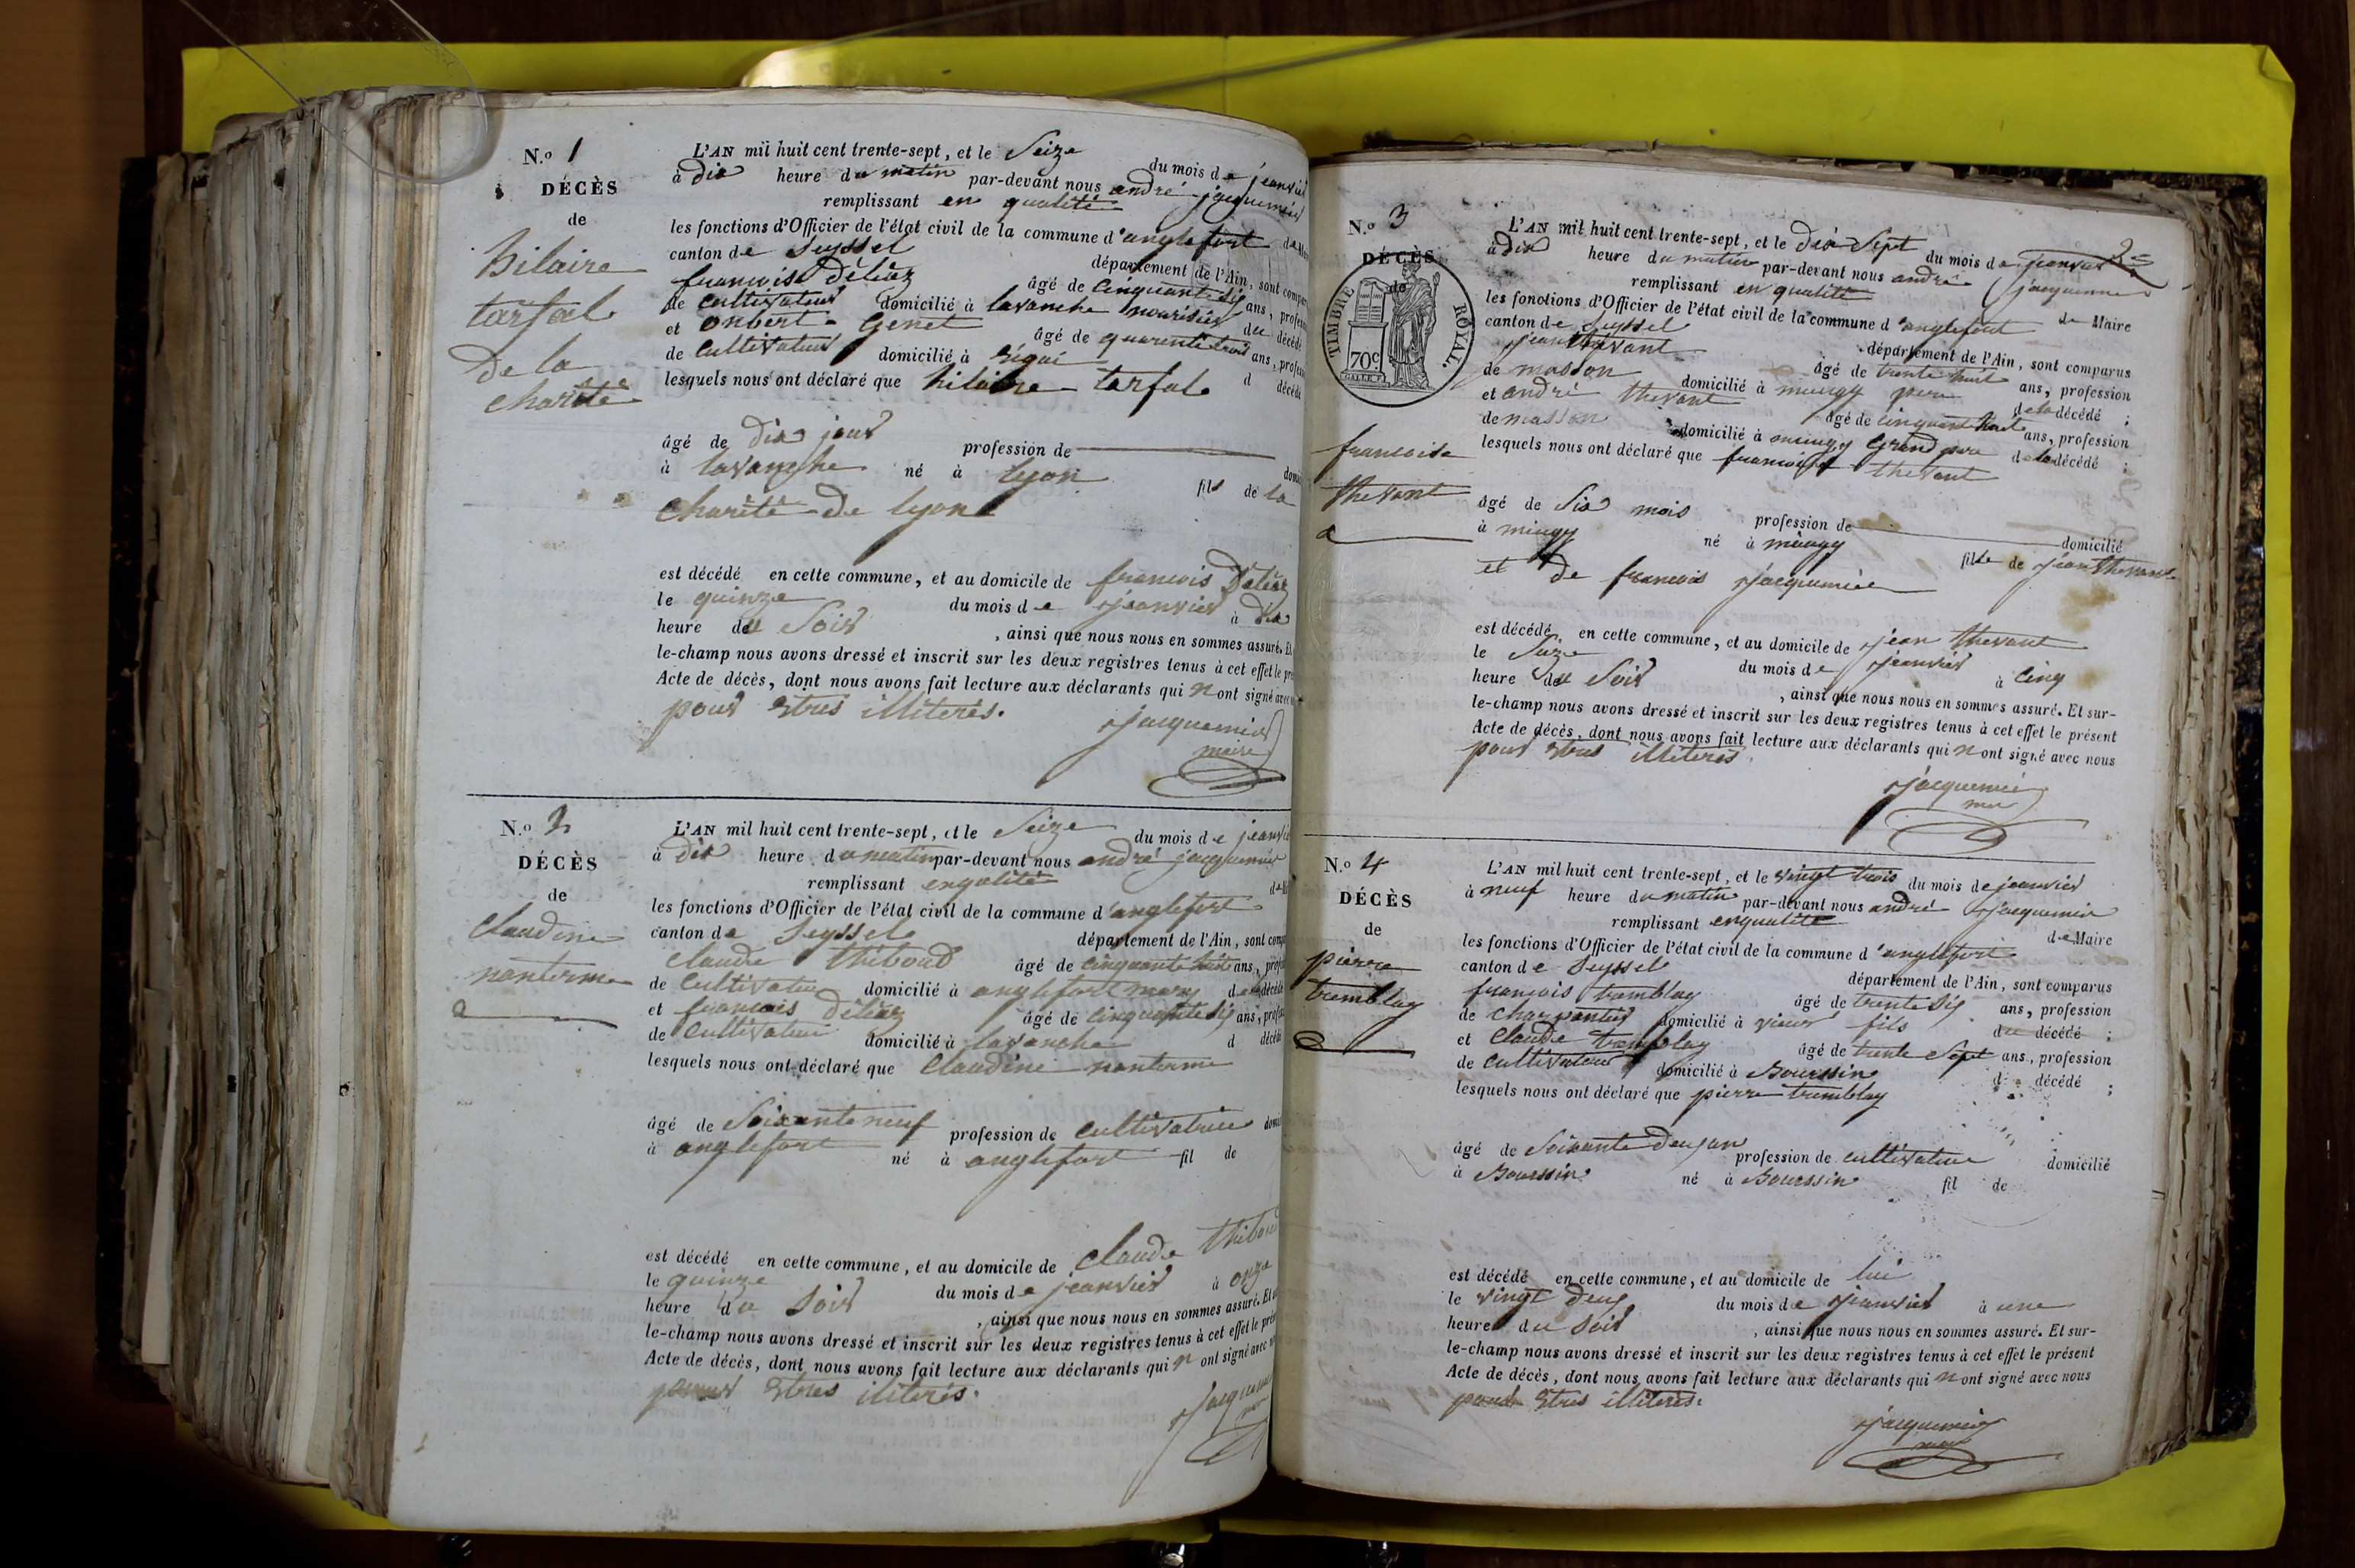 N.o 1
DÉCÈS
de
hilaire
tarfal
De la
charité
L'AN mil huit cent trente-sept, et le Seize du mois de jeanvier
à dix heure du matin par-devant nous andré jacquemier
remplissant en qualité
les fonctions d'Officier de l'état civil de la commune d'anglefort
canton de Seyssel département de l'Ain, sont
françois Déliaz âgé de Cinquante Six ans,
de Cultivateur domicilié à lavanche du décédé
et Genet âgé de quarente trois ans,
de Cultivateur domicilié à d décédé
lesquels nous ont déclaré que hilaire tarfal
âgé de dix jour profession de
à lavanche né à lyon fils de la
charité De lyon
est décédé en cette commune, et au domicile de francois Déliaz
le quinze du mois de jeanvier à dix
heure du Soir , ainsi que nous nous en sommes assuré.
le-champ nous avons dressé et inscrit sur les deux registres tenus à cet effet le
Acte de décès, dont nous avons fait lecture aux déclarants qui n'ont signé
pour Etres illiterés.
jacquemier
maire
N.o 2
DÉCÈS
de
claudine
nanterme
L'AN mil huit cent trente-sept, et le Seize du mois de
à dix heure du matin par-devant nous andré jacquemier
remplissant enqalité
les fonctions d'Officier de l'état civil de la commune d'anglefort
canton de Seyssel département de l'Ain, sont
claude thiboud âgé de cinquante huit ans,
de Cultivateur domicilié à anglefort mary de la décédé
et francois Déliaz âgé de Cinquante Six ans,
de Cultivateur domicilié à lavanche d décédé
lesquels nous ont déclaré que Claudine nanterme
âgé de Soixante neuf profession de cultivatrice
à anglefort né à anglefort fil de
est décédé en cette commune, et au domicile de Claude thiboud
le quinze du mois de jeanvier à onze
heure du Soir , ainsi que nous nous en sommes assuré.
le-champ nous avons dressé et inscrit sur les deux registres tenus à cet effet le
Acte de décès, dont nous avons fait lecture aux déclarants qui n'ont signé avec
pour Etres illiterés.
N.o 3
DÉCÈS
de
TIMBRE ROYAL.
70c
francoise
thevant
L'AN mil huit cent trente-sept, et le dix Sept du mois de jeanvier
à dix heure du matin par-devant nous andré jacquemier
remplissant en qualité de Maire
les fonctions d'Officier de l'état civil de la commune d'anglefort
canton de Seyssel département de l'Ain, sont comparus
jean thevant âgé de trente huit ans, profession
de masson domicilié à mieugy pere de la décédé ;
et andré thevant âgé de cinquant huit ans, profession
de masson domicilié à mieugy Grand pere de la décédé ;
lesquels nous ont déclaré que francoise thevant
âgé de Six mois profession de domicilié
à mieugy né à mieugy fille de jean thevant
et de francois jacquemier
est décédé en cette commune, et au domicile de jean thevant
le Seize du mois de jeanvier à Cinq
heure du Soir , ainsi que nous nous en sommes assuré. Et sur-
le-champ nous avons dressé et inscrit sur les deux registres tenus à cet effet le présent
Acte de décès, dont nous avons fait lecture aux déclarants qui n'ont signé avec nous
pour Etres illiterés
jacquemier
N.o 4
DÉCÈS
de
pierre
tremblay
L'AN mil huit cent trente-sept, et le vingt trois du mois de jeanvier
à neuf heure du matin par-devant nous andré jacquemier
remplissant enqualité de Maire
les fonctions d'Officier de l'état civil de la commune d'anglefort
canton de Seyssel département de l'Ain, sont comparus
francois tramblay âgé de trente Six ans, profession
de charpantier domicilié à fils du décédé ;
et Claude tramblay âgé de trente Sept ans, profession
de cultivateur domicilié à Bourssin d décédé ;
lesquels nous ont déclaré que pierre tremblay
âgé de Soixante Deux an profession de cultivateur domicilié
à Bourssin né à Bourssin fil de
est décédé en cette commune, et au domicile de lui
le vingt Deux du mois de jeanvier à une
heure du Soir , ainsi que nous nous en sommes assuré. Et sur-
le-champ nous avons dressé et inscrit sur les deux registres tenus à cet effet le présent
Acte de décès, dont nous avons fait lecture aux déclarants qui n'ont signé avec nous
pour Etres illiterés.
jacquemier